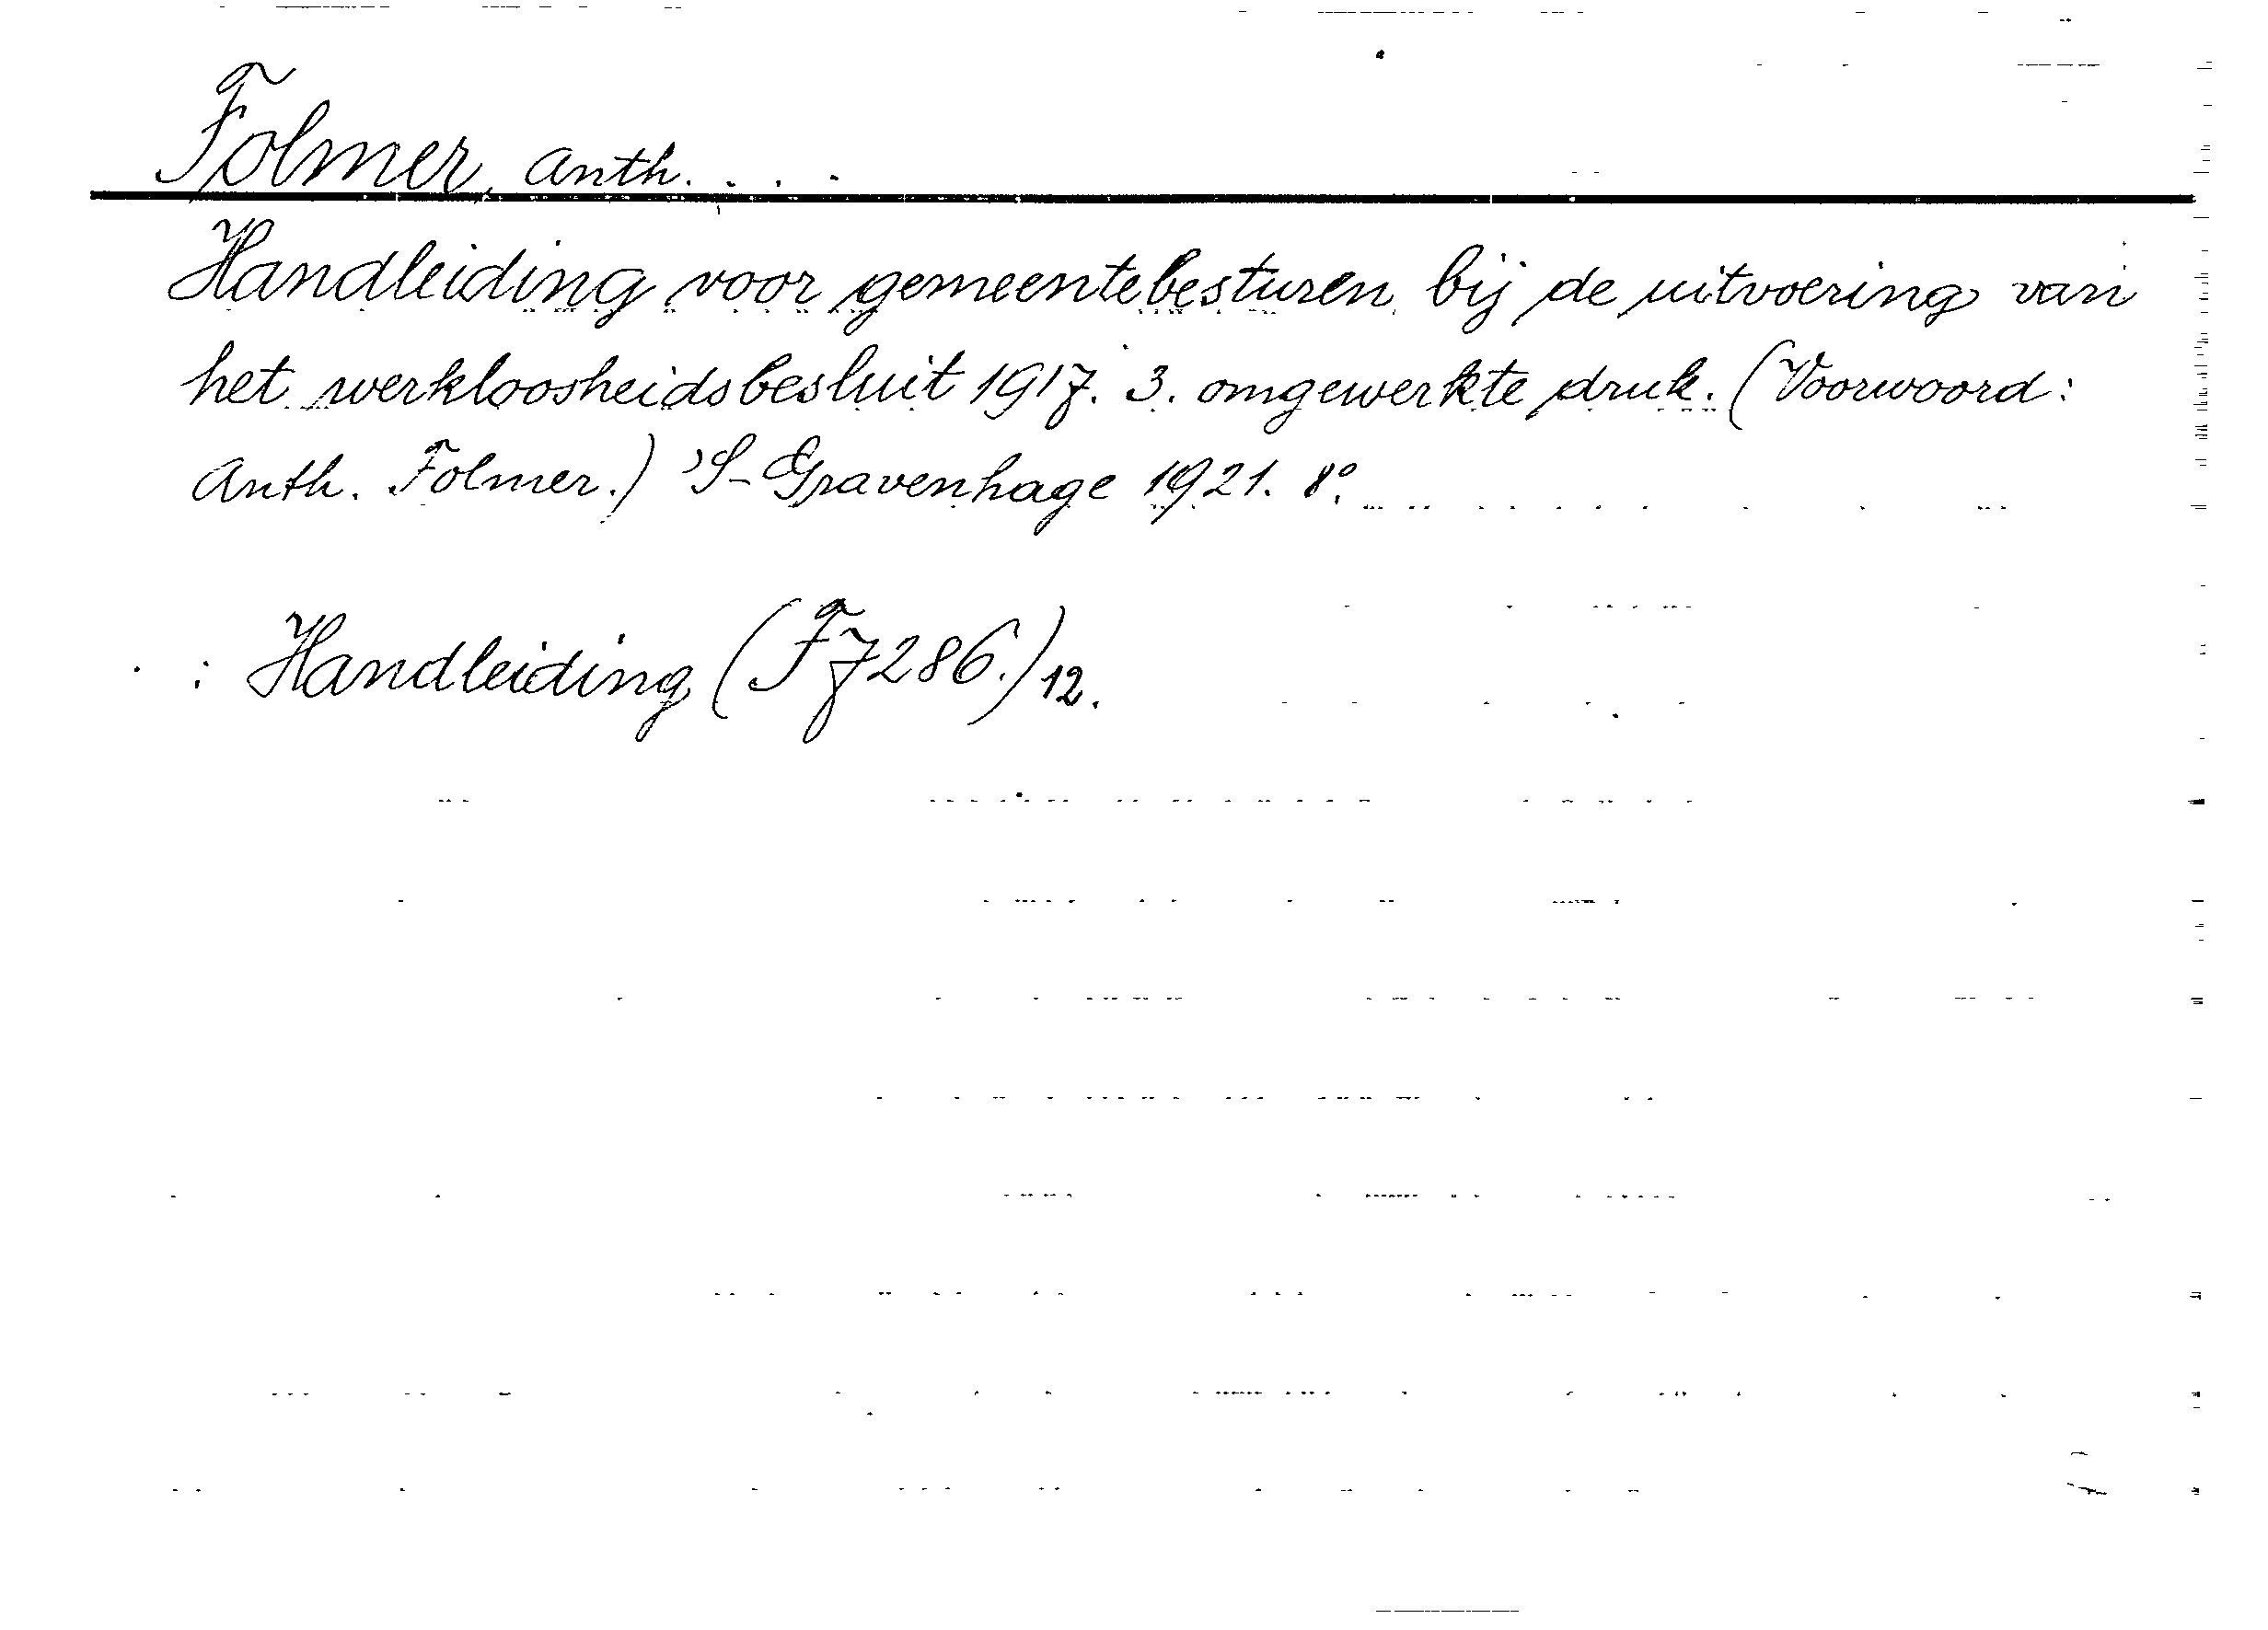 Folmer, Anth. . . .
Handleiding voor gemeentebesturen bij de uitvoering van
het werkloosheidsbesluit 1917. 3. omgewerkte druk. (Voorwoord:
Anth. Folmer.) 'S-Gravenhage 1921. 8°.
: Handleiding (F7286.) 12.